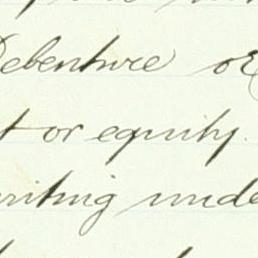 Debenture or
t or equity.
writing unde